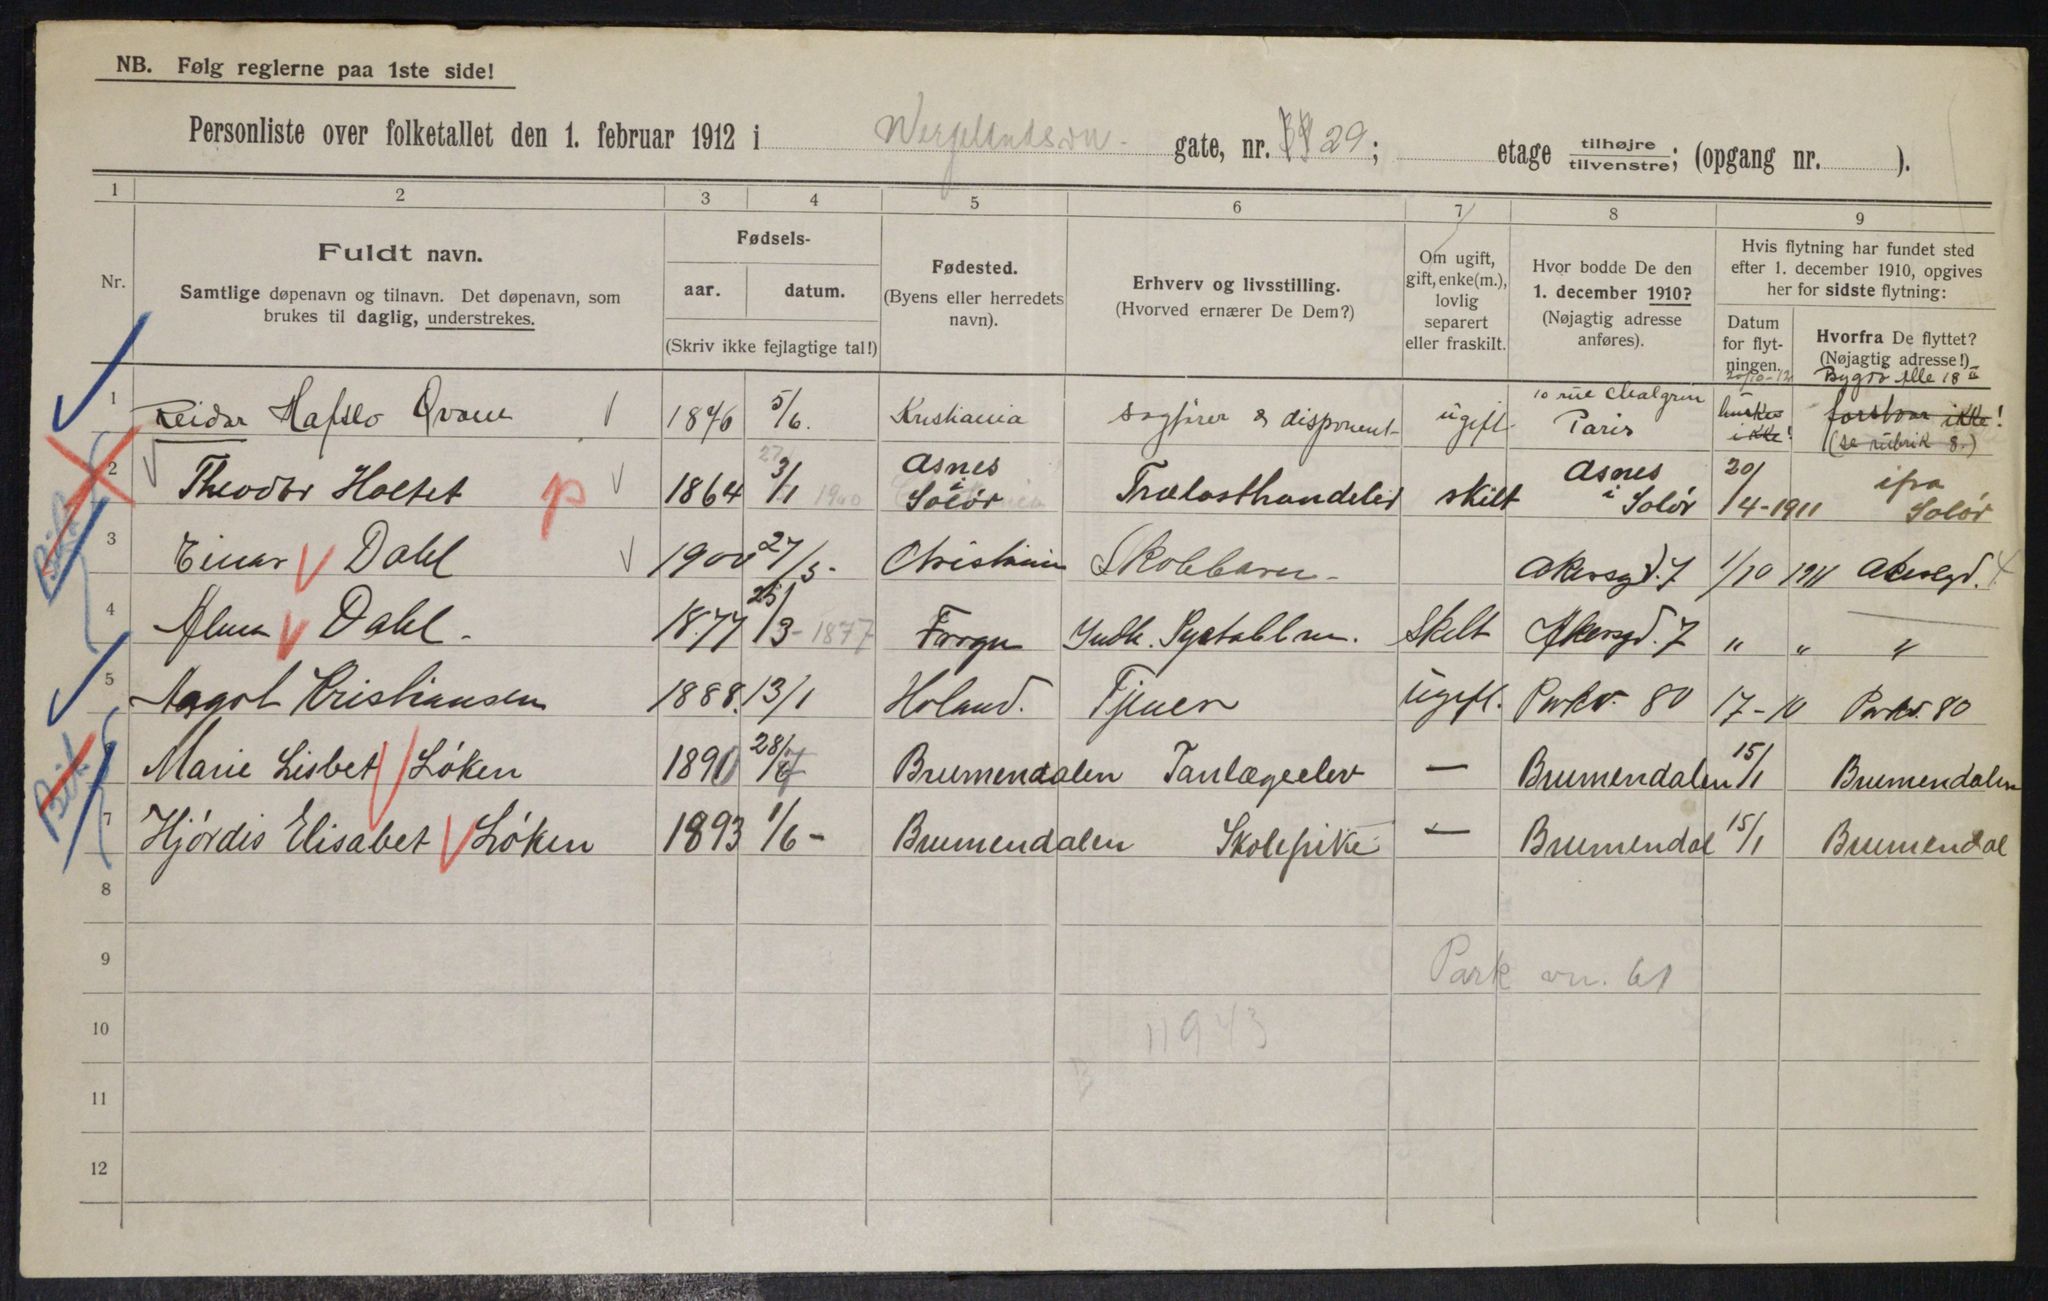 NB. Følg reglerne paa 1ste side!
Personliste over folketallet den 1. februar 1912 i Wergelandsvn. gate, nr. 29; etage tilhøjre/tilvenstre; (opgang nr. ).
1 2 3 4 5 6 7 8 9
Nr.
Fuldt navn.
Samtlige døpenavn og tilnavn. Det døpenavn, som
brukes til daglig, understrekes.
Fødsels-
aar. datum.
(Skriv ikke fejlagtige tal!)
Fødested.
(Byens eller herredets
navn).
Erhverv og livsstilling.
(Hvorved ernærer De Dem?)
Om ugift,
gift, enke(m.),
lovlig
separert
eller fraskilt.
Hvor bodde De den
1. december 1910?
(Nøjagtig adresse
anføres).
Hvis flytning har fundet sted
efter 1. december 1910, opgives
her for sidste flytning:
Datum
for flyt-
ningen.
Hvorfra De flyttet?
(Nøjagtig adresse!)
1 Reidar Hafslo Qvam 1876 5/6. Kristiania Sagfører & disponent ugift 10 rue Chalgrin Paris husker ikke! Bygdø Alle 18 II forstaar ikke! (se rubrik 8.)
2 Theodor Holtet p 1864 3/1 Asnes i Solør Trælasthandeler skilt Asnes i Solør 20/4-1911 ifra Solør
3 Einar Dahl 1900 27/5- Christiania Skolebarn Akersgd. 7 1/10 1911 Akersgd.
4 Alma Dahl. 1877 25/3- 1877 Frogn Indh. Systabl Skilt Akersgd. 7 " " "
5 Aagot Kristiansen 1888. 13/1 Høland. Tjener Ugift. Parkv. 80 17-10 Parkv. 80
Marie Lisbet Løken 1891 28/ Brumendalen Tanlægeelev — Brumendalen 15/1 Brumendalen
7 Hjørdis Elisabet Løken 1893 1/6 - Brumendalen Skolepike — Brumendal 15/1 Brumendal
8
9 Park vn. 61
10 11943
11
12